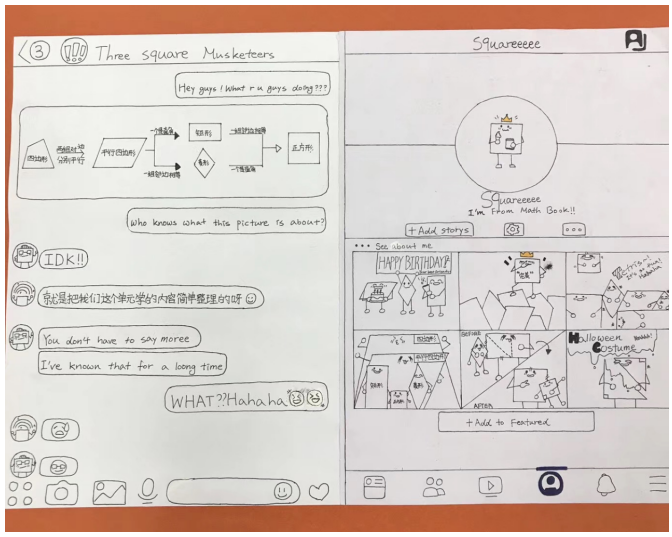 3 Three square Musketeers
Hey guys! What r u guys doing???
四边形
两组对边
分别平行
平行四边形
一个直角
一组邻边相等
矩形
菱形
一组邻边相等
一个直角
正方形
Who knows what this picture is about?
IDK!!
就是把我们这个单元学的内容简单整理的呀
You don't have to say moree
I've known that for a loong time
WHAT??Hahaha
Squareeeee
Squareeeee
I'm From Math Book!!
+ Add storys
... See about me
HAPPY BIRTHDAY!
四边形
平行四边形
矩形
菱形
BEFORE
AFTER
Halloween
Costume
+ Add to Featured